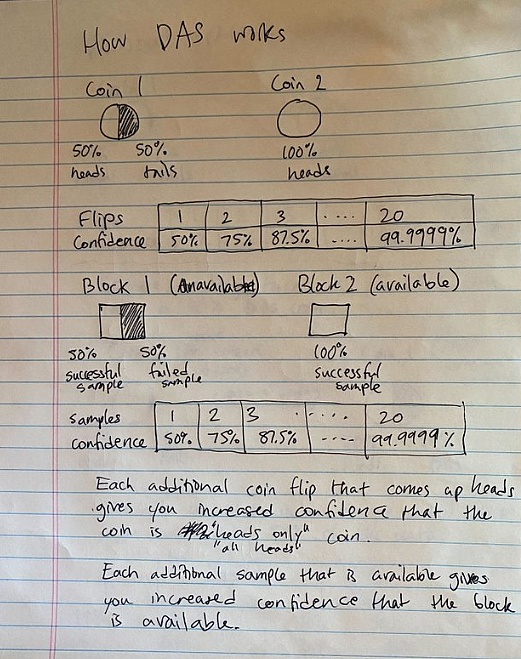 How DAS works
Coin 1 Coin 2
50% 50% 100%
heads tails heads
Flips 1 2 3 .... 20
Confidence 50% 75% 87.5% .... 99.9999%
Block 1 (unavailable) Block 2 (available)
50% 50% 100%
successful failed successful
sample sample sample
samples 1 2 3 ..... 20
confidence 50% 75% 87.5% ---- 99.9999%
Each additional coin flip that comes up heads
gives you increased confidence that the
coin is "heads only" coin.
"all heads"
Each additional sample that is available gives
you increased confidence that the block
is available.